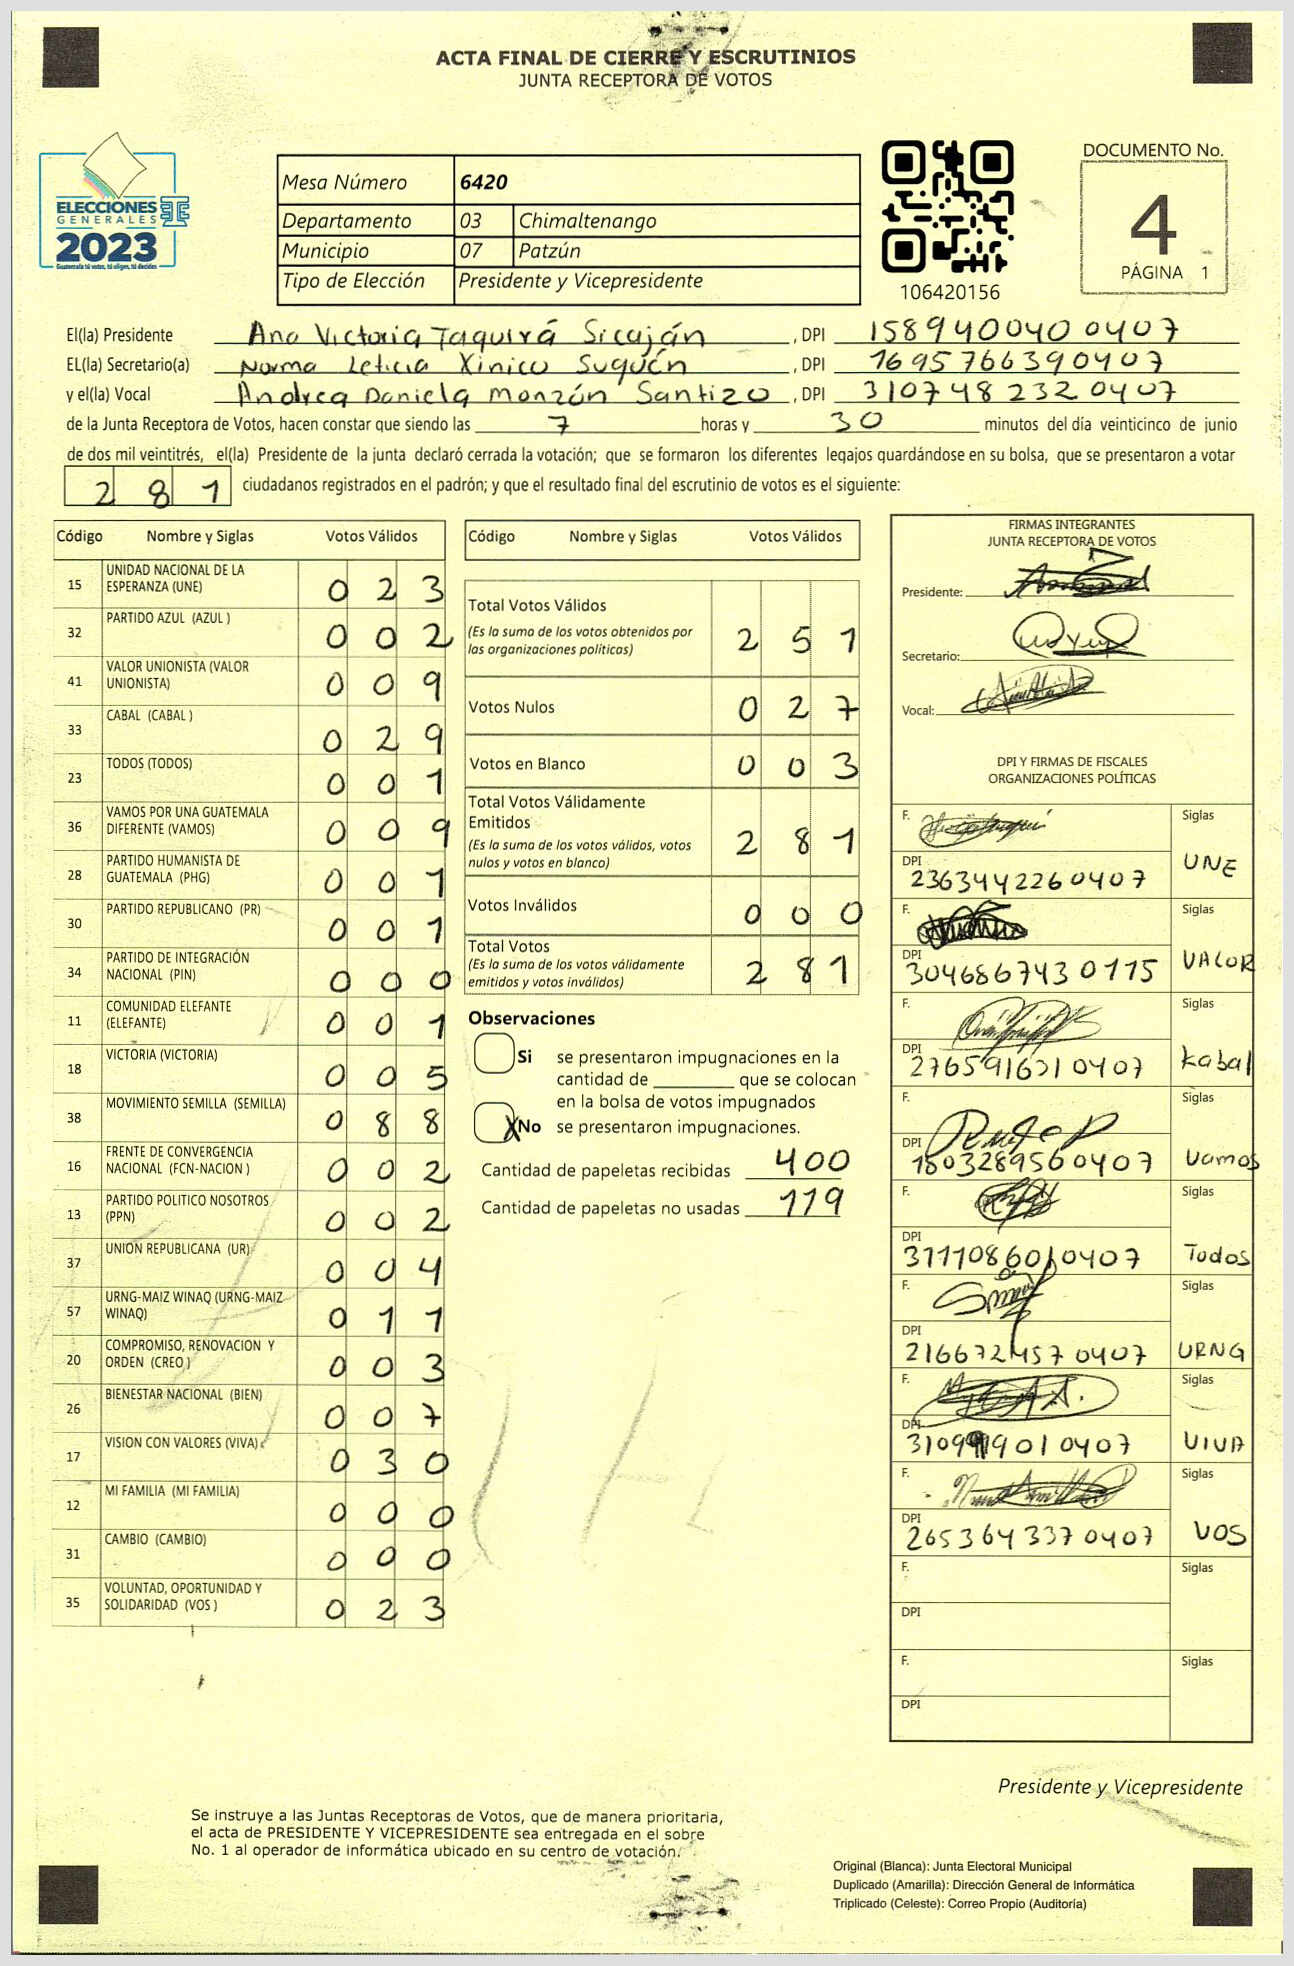 ACTA FINAL DE CIERRE Y ESCRUTINIOS
JUNTA RECEPTORA DE VOTOS
ELECCIONES
GENERALES
2023
Guatemala tú votas, tú eliges, tú decides
Mesa Número 6420
Departamento 03 Chimaltenango
Municipio 07 Patzún
Tipo de Elección Presidente y Vicepresidente
106420156
DOCUMENTO No.
4
PÁGINA 1
El(la) Presidente Ana Victoria Taquirá Sicaján, DPI 1589400400407
EL(la) Secretario(a) Norma Leticia Xinico Suquén, DPI 1695766390407
y el(la) Vocal Andrea Daniela Monzón Santizo, DPI 3107482320407
de la Junta Receptora de Votos, hacen constar que siendo las 7 horas y 30 minutos del día veinticinco de junio
de dos mil veintitrés, el(la) Presidente de la junta declaró cerrada la votación; que se formaron los diferentes legajos guardándose en su bolsa, que se presentaron a votar
281 ciudadanos registrados en el padrón; y que el resultado final del escrutinio de votos es el siguiente:
Código Nombre y Siglas Votos Válidos
15 UNIDAD NACIONAL DE LA ESPERANZA (UNE) 023
32 PARTIDO AZUL (AZUL ) 002
41 VALOR UNIONISTA (VALOR UNIONISTA) 009
33 CABAL (CABAL ) 029
23 TODOS (TODOS) 001
36 VAMOS POR UNA GUATEMALA DIFERENTE (VAMOS) 009
28 PARTIDO HUMANISTA DE GUATEMALA (PHG) 001
30 PARTIDO REPUBLICANO (PR) 001
34 PARTIDO DE INTEGRACIÓN NACIONAL (PIN) 000
11 COMUNIDAD ELEFANTE (ELEFANTE) 001
18 VICTORIA (VICTORIA) 005
38 MOVIMIENTO SEMILLA (SEMILLA) 088
16 FRENTE DE CONVERGENCIA NACIONAL (FCN-NACION ) 002
13 PARTIDO POLITICO NOSOTROS (PPN) 002
37 UNION REPUBLICANA (UR) 004
57 URNG-MAIZ WINAQ (URNG-MAIZ WINAQ) 011
20 COMPROMISO, RENOVACION Y ORDEN (CREO ) 003
26 BIENESTAR NACIONAL (BIEN) 007
17 VISION CON VALORES (VIVA) 030
12 MI FAMILIA (MI FAMILIA) 000
31 CAMBIO (CAMBIO) 000
35 VOLUNTAD, OPORTUNIDAD Y SOLIDARIDAD (VOS ) 023
Código Nombre y Siglas Votos Válidos
Total Votos Válidos 251
(Es la suma de los votos obtenidos por
las organizaciones políticas)
Votos Nulos 027
Votos en Blanco 003
Total Votos Válidamente
Emitidos 281
(Es la suma de los votos válidos, votos
nulos y votos en blanco)
Votos Inválidos 000
Total Votos 281
(Es la suma de los votos válidamente
emitidos y votos inválidos)
Observaciones
Si se presentaron impugnaciones en la
cantidad de ________ que se colocan
en la bolsa de votos impugnados
X No se presentaron impugnaciones.
Cantidad de papeletas recibidas 400
Cantidad de papeletas no usadas 119
FIRMAS INTEGRANTES
JUNTA RECEPTORA DE VOTOS
Presidente:
Secretario:
Vocal:
DPI Y FIRMAS DE FISCALES
ORGANIZACIONES POLÍTICAS
F. Siglas
DPI 2363442260407 UNE
F. Siglas
DPI 3046867430115 VALOR
F. Siglas
DPI kabal
F. Siglas
DPI 1803289560407 Vamos
F. Siglas
DPI 3111086010407 Todos
F. Siglas
DPI 2166721457 0407 URNG
F. Siglas
DPI VIVA
F. Siglas
DPI 2653643370407 VOS
F. Siglas
DPI
F. Siglas
DPI
Presidente y Vicepresidente
Se instruye a las Juntas Receptoras de Votos, que de manera prioritaria,
el acta de PRESIDENTE Y VICEPRESIDENTE sea entregada en el sobre
No. 1 al operador de informática ubicado en su centro de votación.
Original (Blanca): Junta Electoral Municipal
Duplicado (Amarilla): Dirección General de Informática
Triplicado (Celeste): Correo Propio (Auditoría)